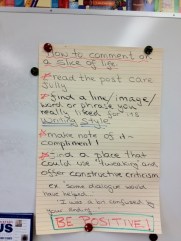 How to comment on
a slice of life
read the post care
fully
find a line/image/
word or phrase you
really liked for its
Writing style
make note of it-
compliment!
find a place that
could use tweaking and
offer constructive criticism
ex. some dialogue would
have helped...
I was a bit confused by
your ending...
BE POSITIVE!
US